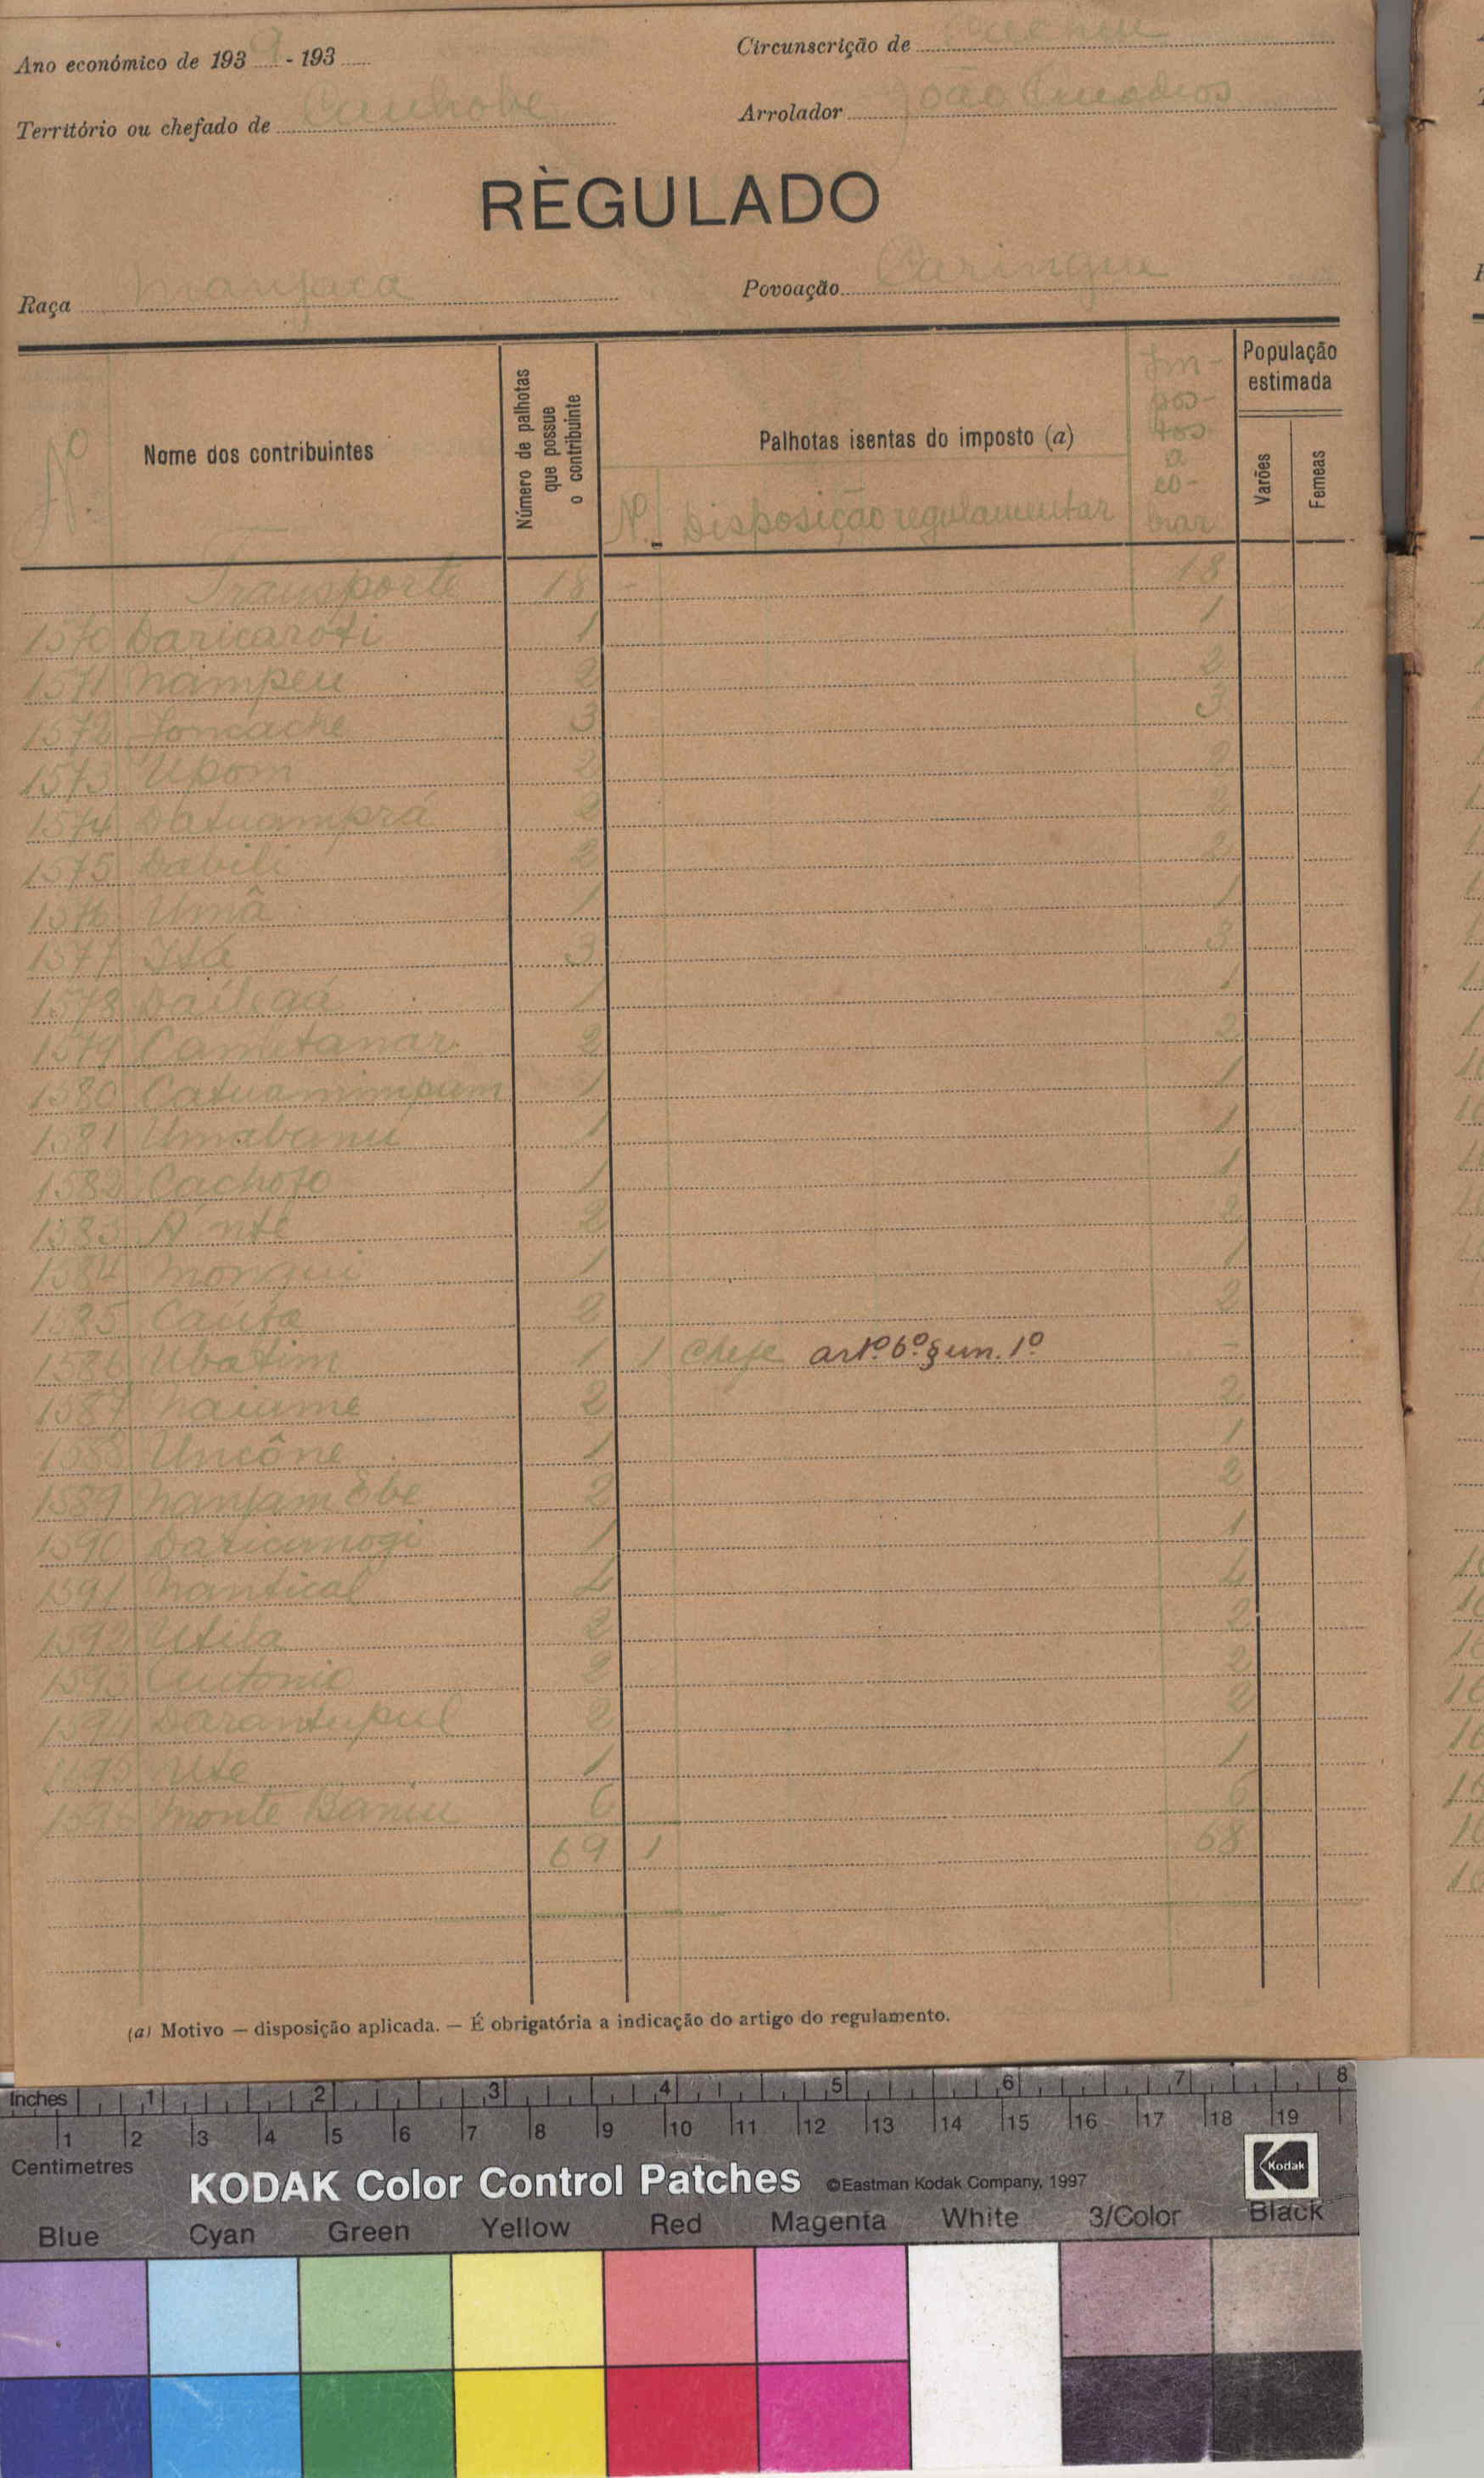 Ano económico de 1939 - 193
Circunscrição de
Território ou chefado de Canhobe
Arrolador João
RÈGULADO
Raça Manjaca
Povoação Caringue
Nº
Nome dos contribuintes
Número de palhotas que possue o contribuinte
Palhotas isentas do imposto (a)
Nº Disposição regulamentar
Im-
pos-
tos
a
co-
brar
População estimada
Varões
Femeas
Transporte 18 - 18
1570 Daricaroti 1 1
1571 Nampeu 2 2
1572 Joncache 3 3
1573 Upom 2 2
1574 Datuamprá 2 2
1575 Dabili 2 2
1576 Umã 1 1
1577 Itá 3 3
1578 1 1
1579 Cametanar 2 2
1580 Catuamimpum 1 1
1581 Umabanu 1 1
1582 1 1
1583 2 2
1584 Monqui 1 1
1585 2 2
1586 Ubatim 1 1 Chefe artº 6º § un. 1º -
1587 Naiume 2 2
1588 Uncône 1 1
1589 Nanjam Ebe 2 2
1590 1 1
1591 Nantical 4 4
1592 Utila 2 2
1593 Antonio 2 2
1594 Darantupul 2 2
1595 Ute 1 1
1596 Monte Baniu 6 6
69 1 68
(a) Motivo — disposição aplicada. — É obrigatória a indicação do artigo do regulamento.
Inches 1 2 3 4 5 6 7 8
1 2 3 4 5 6 7 8 9 10 11 12 13 14 15 16 17 18 19
Centimetres
KODAK Color Control Patches ©Eastman Kodak Company, 1997 Kodak
Blue Cyan Green Yellow Red Magenta White 3/Color Black